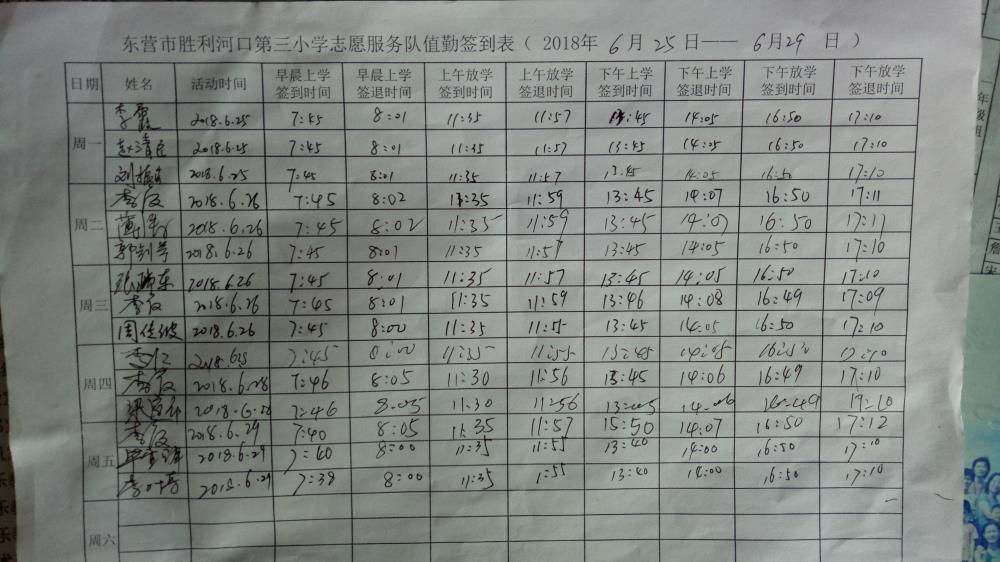 东营市胜利河口第三小学志愿服务队值勤签到表（ 2018年 6月 25日—— 6月29 日 ）
日期 姓名 活动时间 早晨上学签到时间 早晨上学签退时间 上午放学签到时间 上午放学签退时间 下午上学签到时间 下午上学签退时间 下午放学签到时间 下午放学签退时间
周一 李霞 2018.6.25 7:45 8:01 11:35 11:57 13:45 14:05 16:50 17:10
2018.6.25 7:45 8:01 11:35 11:57 13:45 14:05 16:50 17:10
2018.6.25 7:45 8:01 11:35 11:57 13:45 14:05 16:50 17:10
周二 2018.6.26 7:45 8:02 11:35 11:59 13:45 14:07 16:50 17:11
2018.6.26 7:45 8:02 11:35 11:59 13:45 14:07 16:50 17:11
2018.6.26 7:45 8:01 11:35 11:57 13:45 14:05 16:50 17:10
周三 2018.6.26 7:45 8:01 11:35 11:57 13:45 14:05 16:50 17:10
2018.6.26 7:45 8:01 11:35 11:59 13:46 14:08 16:49 17:09
2018.6.26 7:45 8:00 11:35 13:45 14:05 16:50 17:10
周四 7:45 8:00 11:35 11:55 13:45 14:05 16:50 17:10
2018.6.28 7:46 8:05 11:30 11:56 13:45 14:06 16:49 17:10
2018.6.28 7:46 8:05 11:30 11:56 13:05 14:06 16:49 17:10
周五 2018.6.29 7:40 8:05 11:35 11:57 15:50 14:07 16:50 17:12
2018.6.29 7:40 8:00 11:35 11:55 13:40 14:00 16:50 17:10
2018.6.29 7:38 8:00 11:35 1:55 13:40 14:00 16:50 17:10
周六